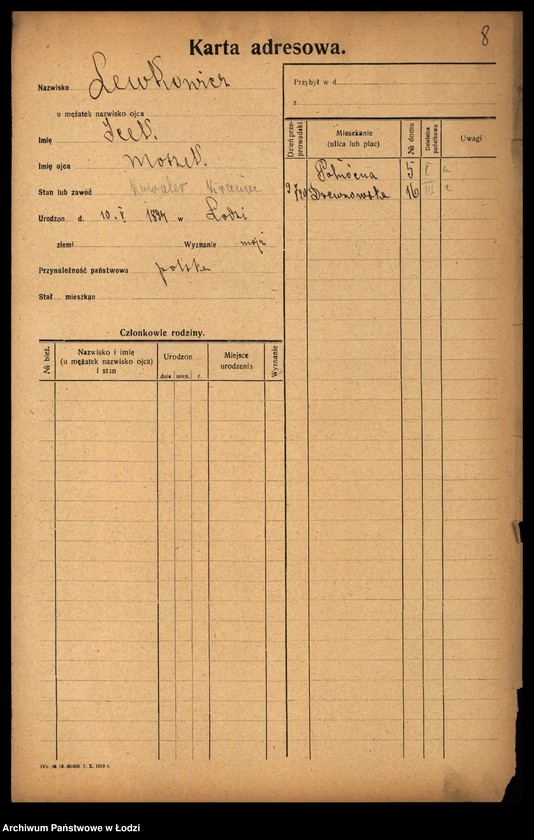 8
Karta adresowa.
Nazwisko Lewkowicz
u mężatek nazwisko ojca
Imię Icek.
Imię ojca Moszek.
Stan lub zawód Kawaler
Urodzon d. 10. V 1894 w Łodzi
ziemi Wyznanie mojż
Przynależność państwowa polska
Stał mieszkan
Członkowie rodziny.
№ bież.
Nazwisko i imię
(u mężatek nazwisko ojca)
i stan
Urodzon
dnia mies. r.
Miejsce
urodzenia
Wyznanie
Przybył w d.
z
Dzień przeprowadzki
Mieszkanie
(ulica lub plac)
№ domu
Dzielnica podatkowa
Uwagi
Północna 5 I a
Drewnowska 16 III
IVa № 18. 60000 7. X. 1919 r.
Archiwum Państwowe w Łodzi